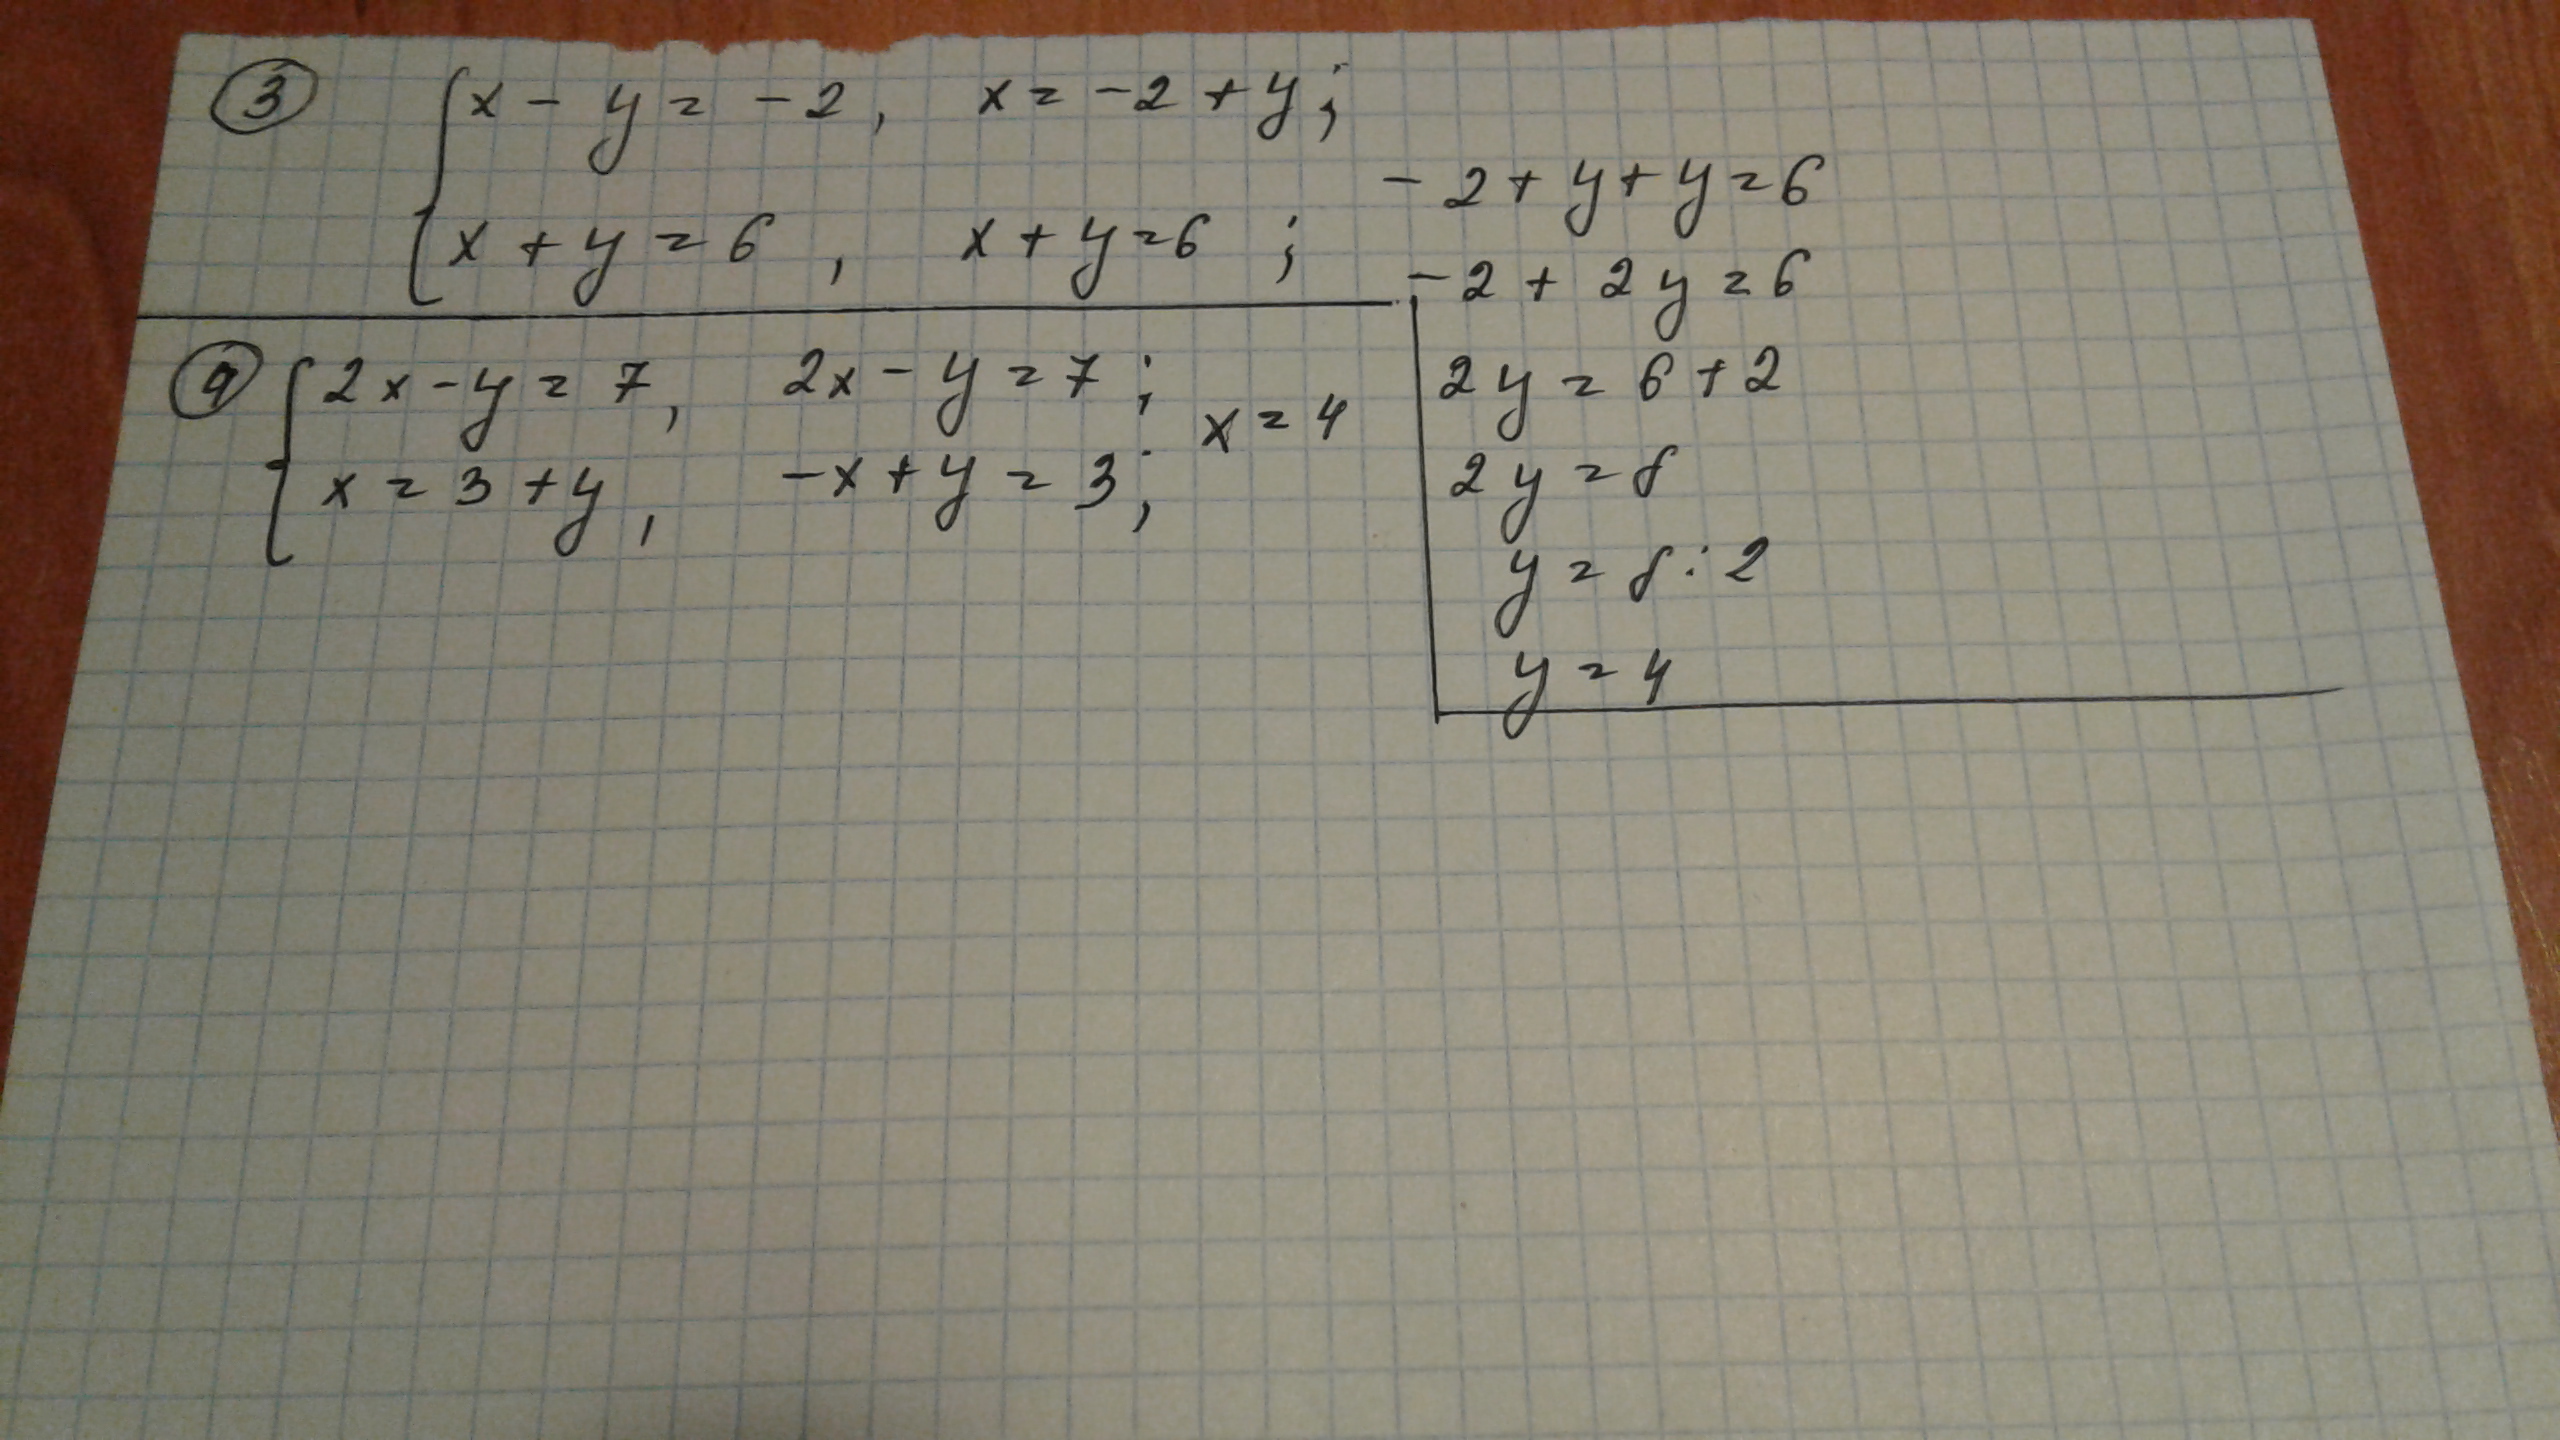 ③ { x - y = -2, x = -2 + y;
x + y = 6, x + y = 6;
-2 + y + y = 6
-2 + 2y = 6
2y = 6 + 2
2y = 8
y = 8 : 2
y = 4
④ { 2x - y = 7, 2x - y = 7;
x = 3 + y, -x + y = 3;
x = 4